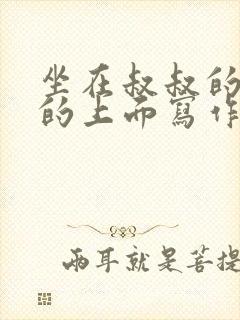 坐在叔叔的
的上而寫作
兩耳就是菩提